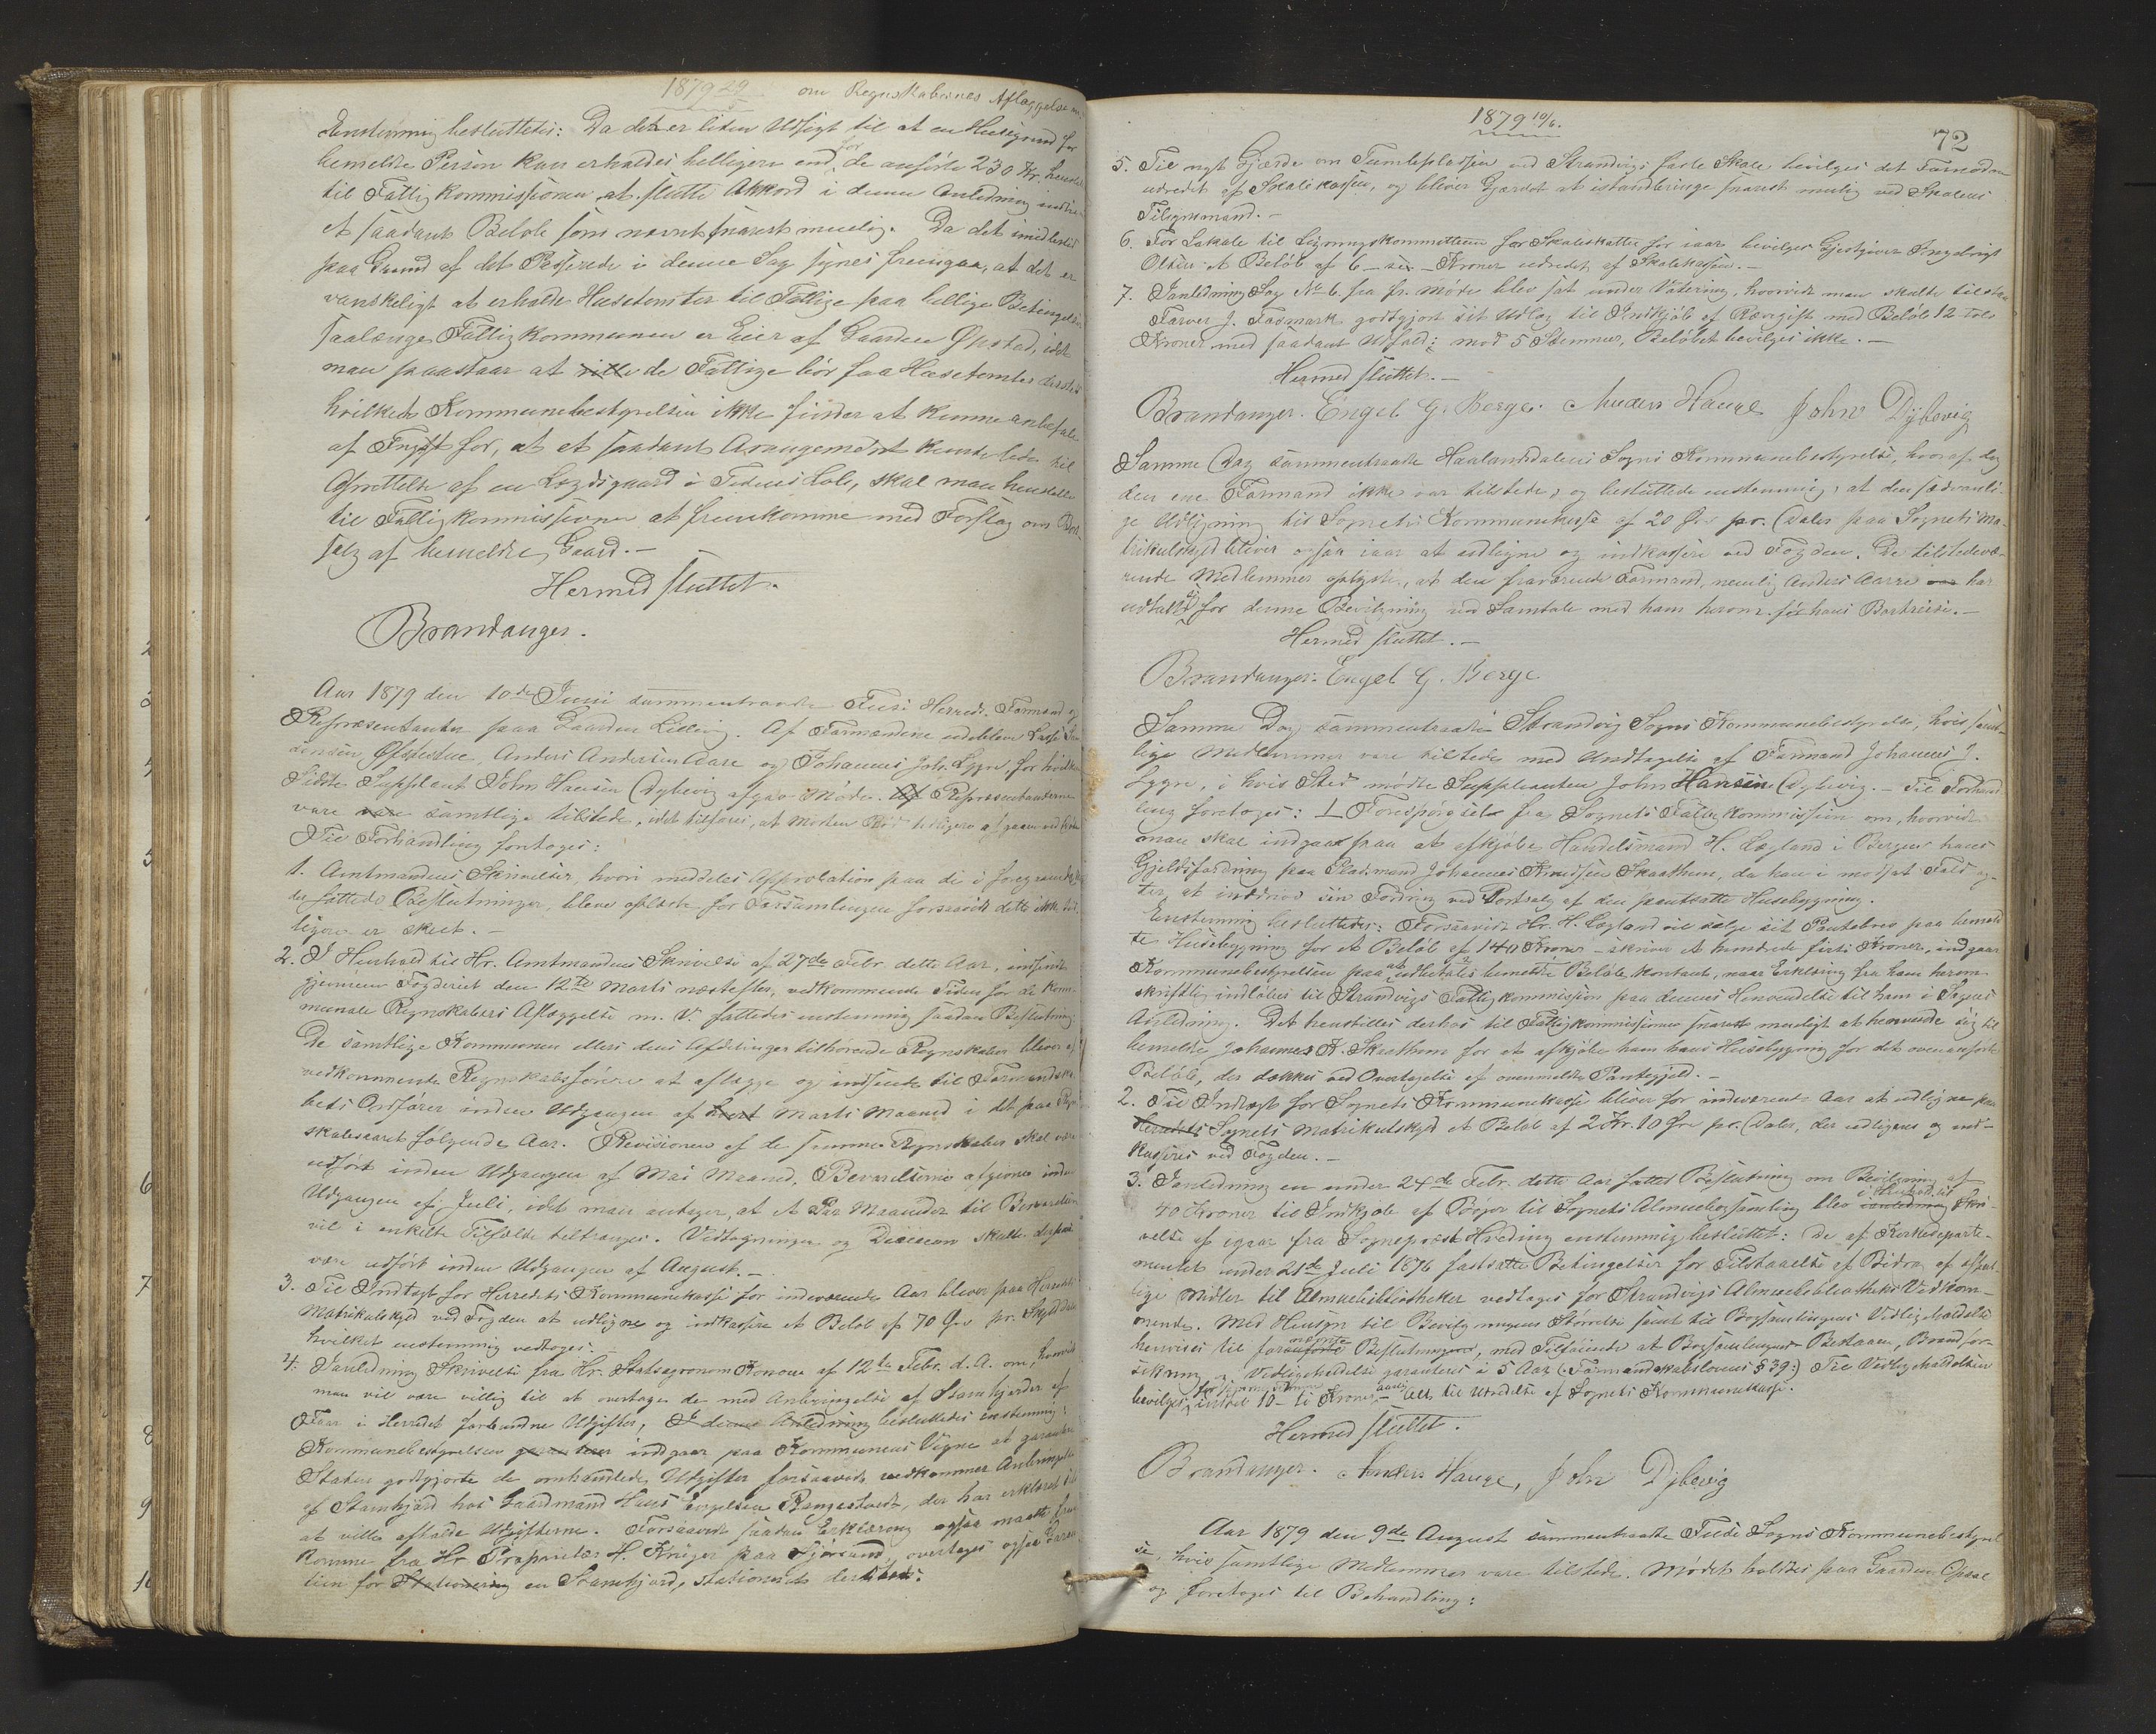 1879 29
om Regnskabernes Aflæggelse m.
Enstemmig besluttedes: Da det er liden Udsigt til at en Husegrund for
bemeldte Person kan erholdes billigere end for de anførte 230 Kr. henst
til Fattigkommissionen at slutte Akkord i denne Anledning
et saadant Beløb som nævnt snarest muelig. Da det imidlertid
paa Grund af det Passerede i denne Sag synes fremgaa, at det er
vanskeligt at erholde Husetomter til Fattige paa billige Betingelser
saalænge Fattigkommunen er Eier af Gaarden Opstad, idet
man paastaar at ville de Fattige bør faa Husetomter dersteds
hvilket Kommunebestyrelsen ikke finder at kunne anbefale
af Frygt for, at et saadant Arangement kunde lede til
Oprettelse af en Lægdsgaard i Tidens Løb, skal man henstille
til Fattigkommissionen at fremkomme med Forslag om Bort-
salg af bemeldte Gaard. –
Hermed sluttet.
Brandanger.
Aar 1879 den 10de Juni sammentraadte Fuse Herreds Formænd og
Repræsentanter paa Gaarden Lillevig. Af Formændene udebleve Lasse
Ofstestue, Anders Andersen Aare og Johannes Joh. Lygre, for hvilken
Sidste Supplent John Hansen Dybevig afgav Møde. Af Repræsentanterne
vare vare samtlige tilstede, idet tilføies, at Morten
Til Forhandling foretoges:
1. Amtmandens Skrivelser, hvori meddeles Approbation paa de i Foregaaende
der fattede Beslutninger, bleve oplæste for Forsamlingen forsaavidt dette ikke tid-
ligere er skeet. –
2. I Henhold til Hr. Amtmandens Skrivelse af 27de Febr. dette Aar, indsendt
gjennem Fogderiet den 12te Marts næstefter, vedkommende Tiden for de Kom-
munale Regnskabers Aflæggelse m. V. fattedes enstemmig saadan Beslutning:
De samtlige Kommunen ellers dens Afdelinger tilhørende Regnskaber bliver af
vedkommende Regnskabsførere at aflægge og indsende til Formandska-
bets Ordfører inden Udgangen af hvert Marts Maaned i det paa Regn-
skabsaaret følgende Aar. Revisionen af de samme Regnskaber skal være
udført inden Udgangen af Mai Maaned, Besvarelserne afgives inden
Udgangen af Juli, idet man antager, at et Par Maaneder til Besvarelsen
vil i enkelte Tilfælde tiltrænges. Vedtagningen og Decision skulle derpaa
være udført inden Udgangen af August. –
3. Til Indtægt for Herredets Kommunekasse for indeværende Aar bliver paa Herredets
Matrikulskyld ved Fogden at udligne og indkassere et Beløb af 70 Øre pr. Skylddaler
hvilket enstemmig vedtoges.
4. Ianledning Skrivelse fra Hr. Statsagronom Konow af 12te Febr. d. A. om, hvorvidt
man vil være villig til at overtage de med Anbringelse af Stamhjorder af
Faar i Herredet forbundne Utgifter, I denne Anledning besluttedes enstemmig:
Kommunebestyrelsen garanterer indgaar paa Kommunens Vegne at garantere
Staten godtgjorte de omhandlede Udgifter forsaavidt vedkommer Anbringelse
af Stamhjord hos Gaardmand Hans Engelsen Rangestvedt, der har erklæret
at ville afholde Udgifterne. Forsaavidt saadan Erklæring ogsaa maatte frem-
komme fra Hr. Proprietær H. Krüger paa overtages ogsaa Garan-
tien for Stationering en Stamhjord, stationeret dersteds.
1879 10/6.
72
5. Til nyt Gjærde om Tumlepladsen ved Strandvigs faste Skole bevilges det Fornødne
udredet af Skolekassen, og bliver Gjærdet at istandbringe snarest mulig ved Skolens
Tilsynsmand. –
6. For Lokale til Ligningskommitteen for Skoleskatten for iaar bevilges Gjestgiver Ingebrigt
Olsen et Beløb af 6 – sex – Kroner udredet af Skolekassen. –
7. Ianledning Sag No 6. fra fr. Møde blev sat under Votering, hvorvidt man skulde tilstaa
Farver J. Fosmark godtgjort sit Udlæg til Indkjøb af Rævegift med Beløb 12 tolv
Kroner med saadant Udfald: mod 5 Stemmer, Beløbet bevilges ikke. –
Hermed sluttet. –
Brandanger. Engel G. Berge. Anders Hauge John Dybevig
Samme Dag sammentraadte Haalandsdalens Sogns Kommunebestyrelse, hvoraf dog
den ene Formand ikke var tilstede, og besluttede enstemmig, at den sædvanli-
ge Udligning til Sognets Kommunekasse af 20 Øre pr. Daler paa Sognets Ma-
trikulskyld bliver ogsaa iaar at udligne og indkassere ved Fogden. De tilstedevæ-
rende Medlemmer oplyste, at den fraværende Formand, nemlig Anders Aarre var har
udtalt sig for denne Bevilgning ved Samtale med ham herom før hans Bortreise. –
Hermed sluttet. –
Brandanger. Engel G. Berge
Samme Dag sammentraadte Strandvig Sogns Kommunebestyrelse, hvis samt-
lige Medlemmer vare tilstede med Undtagelse af Formand Johannes J.
Lygre, i hvis Sted mødte Suppleanten John Hansen Dybevig. – Til Forhand-
ling foretoges: 1 Forespørgsel fra Sognets Fattigkommission om, hvorvidt
man skal indgaa paa at afkjøbe Handelsmand H. Legland i Bergen hans
Gjeldsfordring paa Pladsmand Johannes Knudsen Skaathun, da han i modsat Fald ag-
ter at inddrive sin Fordring ved Bortsalg af den pantsatte Husebygning.
Enstemmig besluttedes: Forsaavidt Hr. H. Legland vil sælge sit Pantebrev paa bemeld-
te Husebygning for et Beløb af 140 Kroner – skriver et hundrede firti Kroner, indgaar
Kommunebestyrelsen paa at udbetale bemeldte Beløb kontant, naar Erklæring fra ham herom
skriftlig indløber til Strandvigs Fattigkommission paa dennes Henvendelse til ham i Sagens
Anledning. Det henstilles derhos til Fattigkommissionen snarest mueligt at henvende sig til
bemeldte Johannes K. Skaathun for at afkjøbe ham hans Husebygning for det ovenanførte
Beløb, der dækkes ved Overtagelse af ovenmeldte Pantegjeld. –
2. Til Indtægt for Sognets Kommunekasse bliver for indeværende Aar at udligne paa
Herredets Sognets Matrikulskyld et Beløb af 2 Kr. 10 Øre pr. Daler, der udlignes og ind-
kasseres ved Fogden. –
3. Ianledning en under 24de Febr. dette Aar fattet Beslutning om Bevilgning af
40 Kroner til Indkjøb af Bøger til Sognets Almuebogsamling blev ianledning i Henhold til Skri-
velse af igaar fra Sogneprest Hvoding enstemmig besluttet: De af Kirkedeparte-
mentet under 21de Juli 1876 fastsatte Betingelser for Tilstaaelse af Bidrag af offent-
lige Midler til Almuebibliotheker vedtages for Strandvigs Almuebibliotheks Vedkom-
mende. Med Hensyn til Bevilgningens Størrelse samt til Bogsamlingens Vedligeholdelse
henvises til foranførte nævnte Beslutning, med Tilføiende at Bogsamlingens Bestaaen, Brandfor-
sikring og Vedligeholdelse garanteres i 5 Aar (: Formandskabslovens § 39:) Til Vedligeholdelsen
bevilges indtil 10 – ti Kroner aarlig Alt til Utredelse af Sognets Kommunekasse.
Hermed sluttet.
Brandanger. Anders Hauge, John Dybevig
Aar 1879 den 9de August sammentraadte Fuse Sogns Kommunebestyrel-
se, hvis samtlige Medlemmer vare tilstede. Mødet holdtes paa Gaarden Opsal
og foretoges til Behandling: